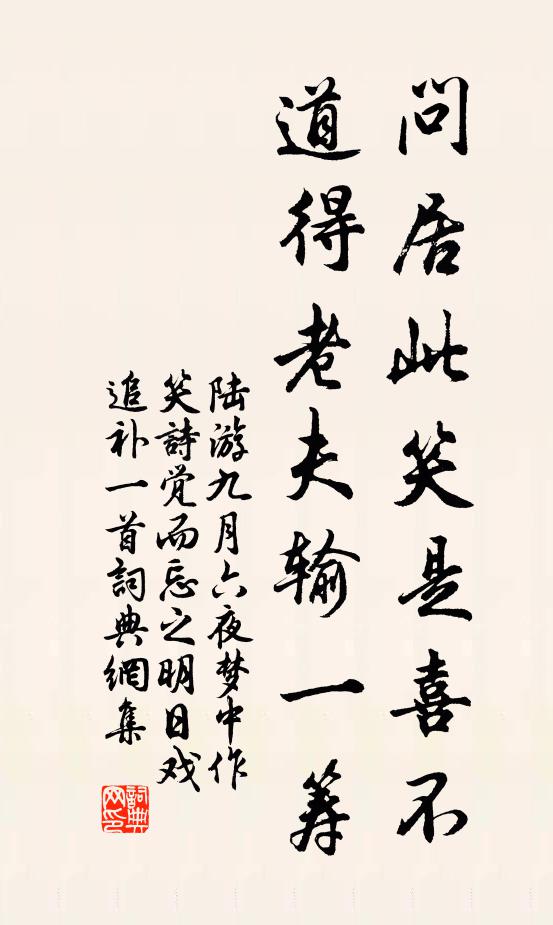 问居此笑是喜不
道得老夫输一筹
陆游九月六夜梦中作
笑詩觉而忘之明日戏
追补一首詞典網集
詞典网印